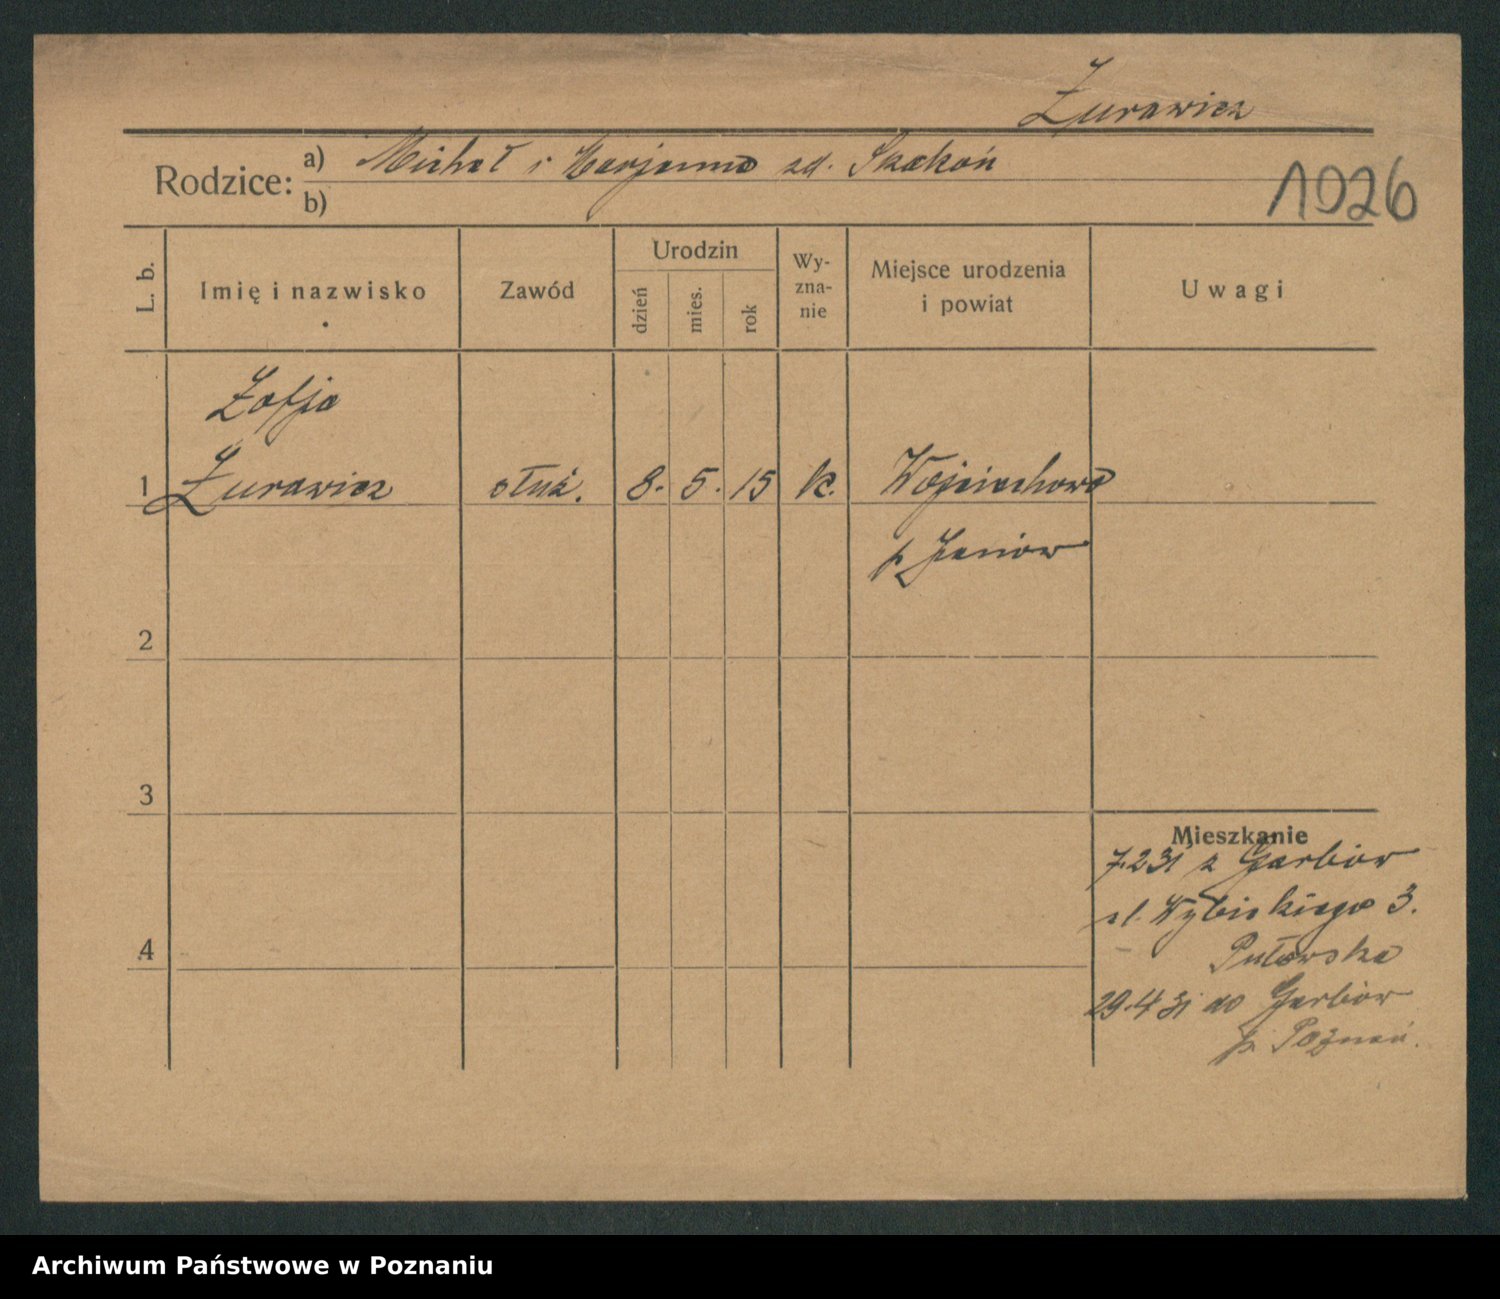 Żurawicz
Rodzice:
a) Michał i Marjanna zd. Skakoń
b)
1026
L. b.
Imię i nazwisko
Zawód
Urodzin
dzień
mies.
rok
Wy-
zna-
nie
Miejsce urodzenia
i powiat
Uwagi
Zofja
1 Żurawicz służ. 8. 5. 15 k. Wojciechowo
p. Janów
2
3
4
Mieszkanie
7.2 31 z Garbów
ul. Wybickiego 3.
29.4 31 do Garbów
p. Poznań.
Archiwum Państwowe w Poznaniu